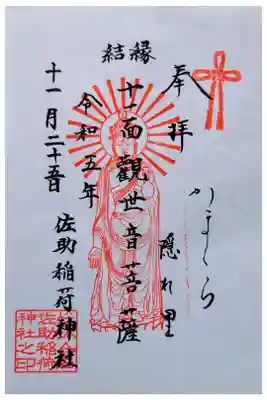 奉拝
かまくら
隠れ里
縁結
十一面觀世音菩薩
令和五年
十一月二十五日
佐助稲荷神社
佐助稲荷
神社之印